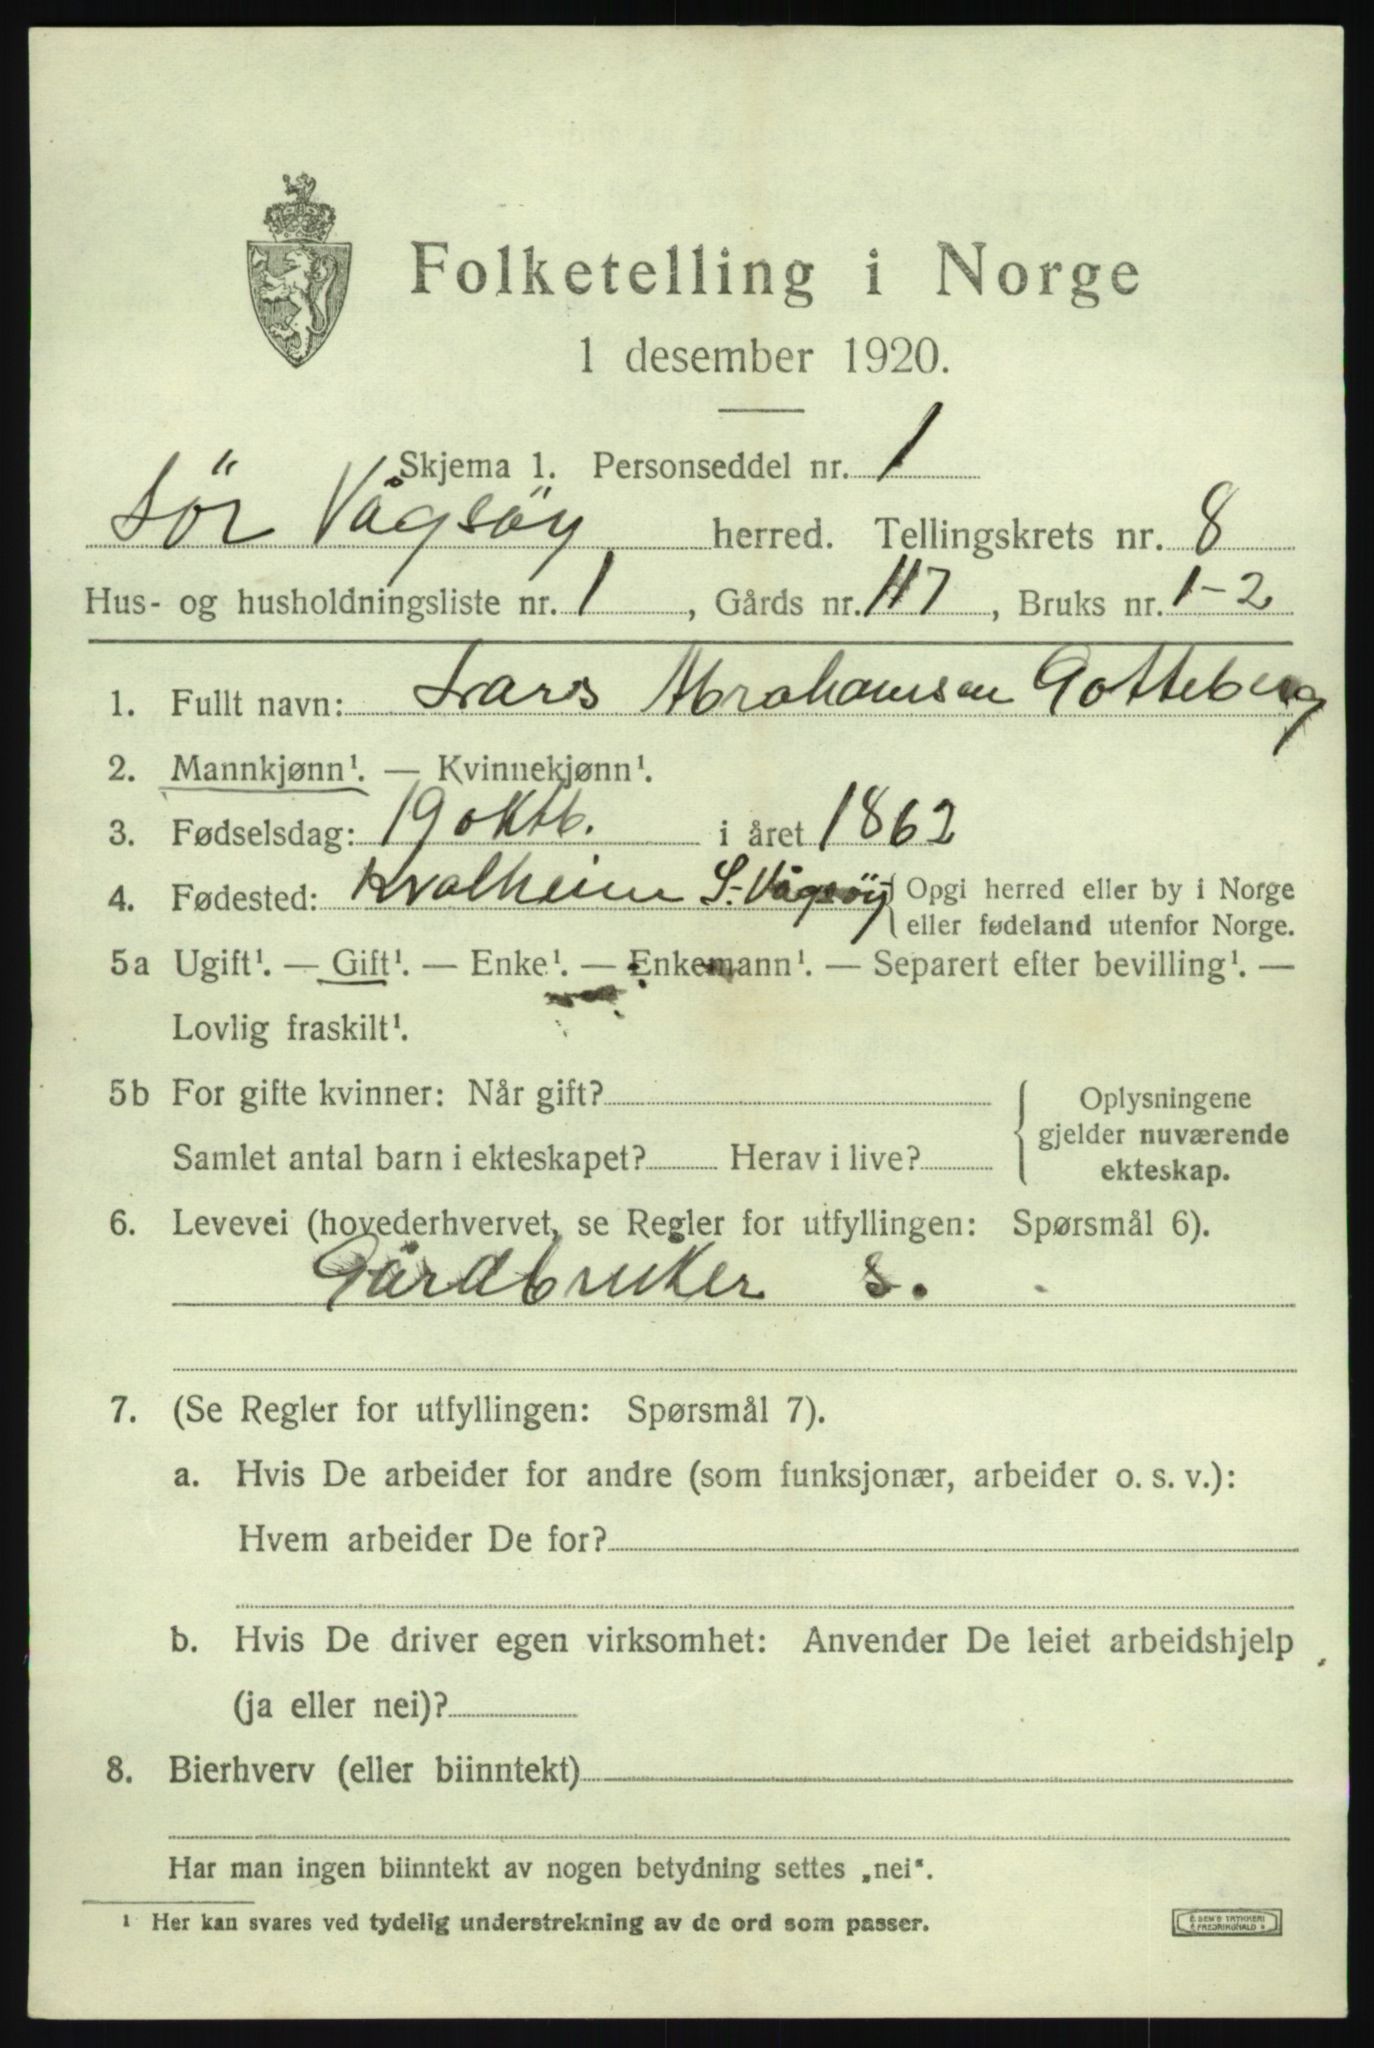 Folketelling i Norge
1 desember 1920.
Skjema 1. Personseddel nr. 1
Sör Vågsöy herred. Tellingskrets nr. 8
Hus- og husholdningsliste nr. 1, Gårds nr. 117, Bruks nr. 1-2
1. Fullt navn: Lars Abrahamsen Gotteberg
2. Mannkjønn¹. — Kvinnekjønn¹.
3. Fødselsdag: 19 oktb. i året 1862
4. Fødested: Kvalheim S. Vågsöy { Opgi herred eller by i Norge
eller fødeland utenfor Norge.
5a Ugift¹. — Gift¹. — Enke¹. — Enkemann¹. — Separert efter bevilling¹. —
Lovlig fraskilt¹.
5b For gifte kvinner: Når gift?
Samlet antal barn i ekteskapet? Herav i live?
Oplysningene
gjelder nuværende
ekteskap.
6. Levevei (hovederhvervet, se Regler for utfyllingen: Spørsmål 6).
Gårdbruker s.
7. (Se Regler for utfyllingen: Spørsmål 7).
a. Hvis De arbeider for andre (som funksjonær, arbeider o. s. v.):
Hvem arbeider De for?
b. Hvis De driver egen virksomhet: Anvender De leiet arbeidshjelp
(ja eller nei)?
8. Bierhverv (eller biinntekt)
Har man ingen biinntekt av nogen betydning settes „nei“.
¹ Her kan svares ved tydelig understrekning av de ord som passer.